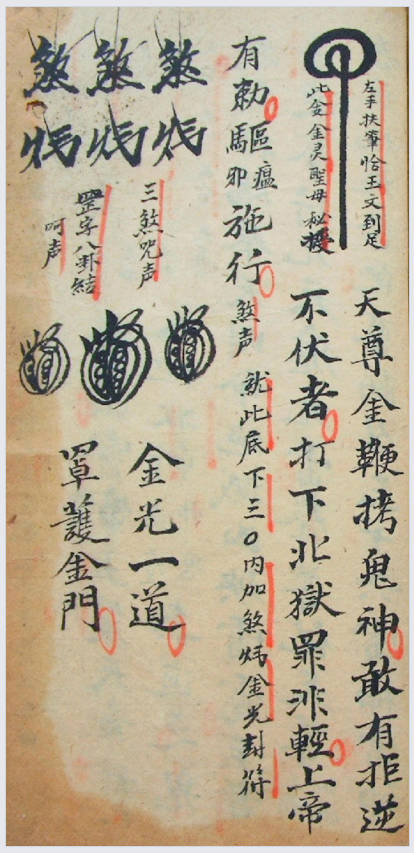 左手扶筆恰玉文到足
此㑒金灵聖母秘授
天尊金鞭拷鬼神敢有拒逆
不伏者打下北獄罪非輕上帝
有勅驅邪瘟施行
煞声就此底下三〇内加煞炁金光封符
煞炁
煞炁
煞炁
三煞咒声
罡字八卦結
呵声
金光一道
罩護金門